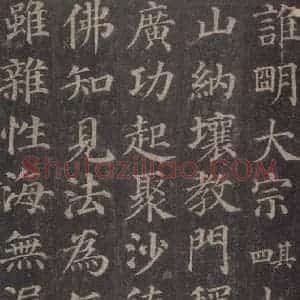 誰明大宗其四
山納壤教門
廣功起聚沙
佛知見法為
雖雜性海無
Shufaziliao.COM